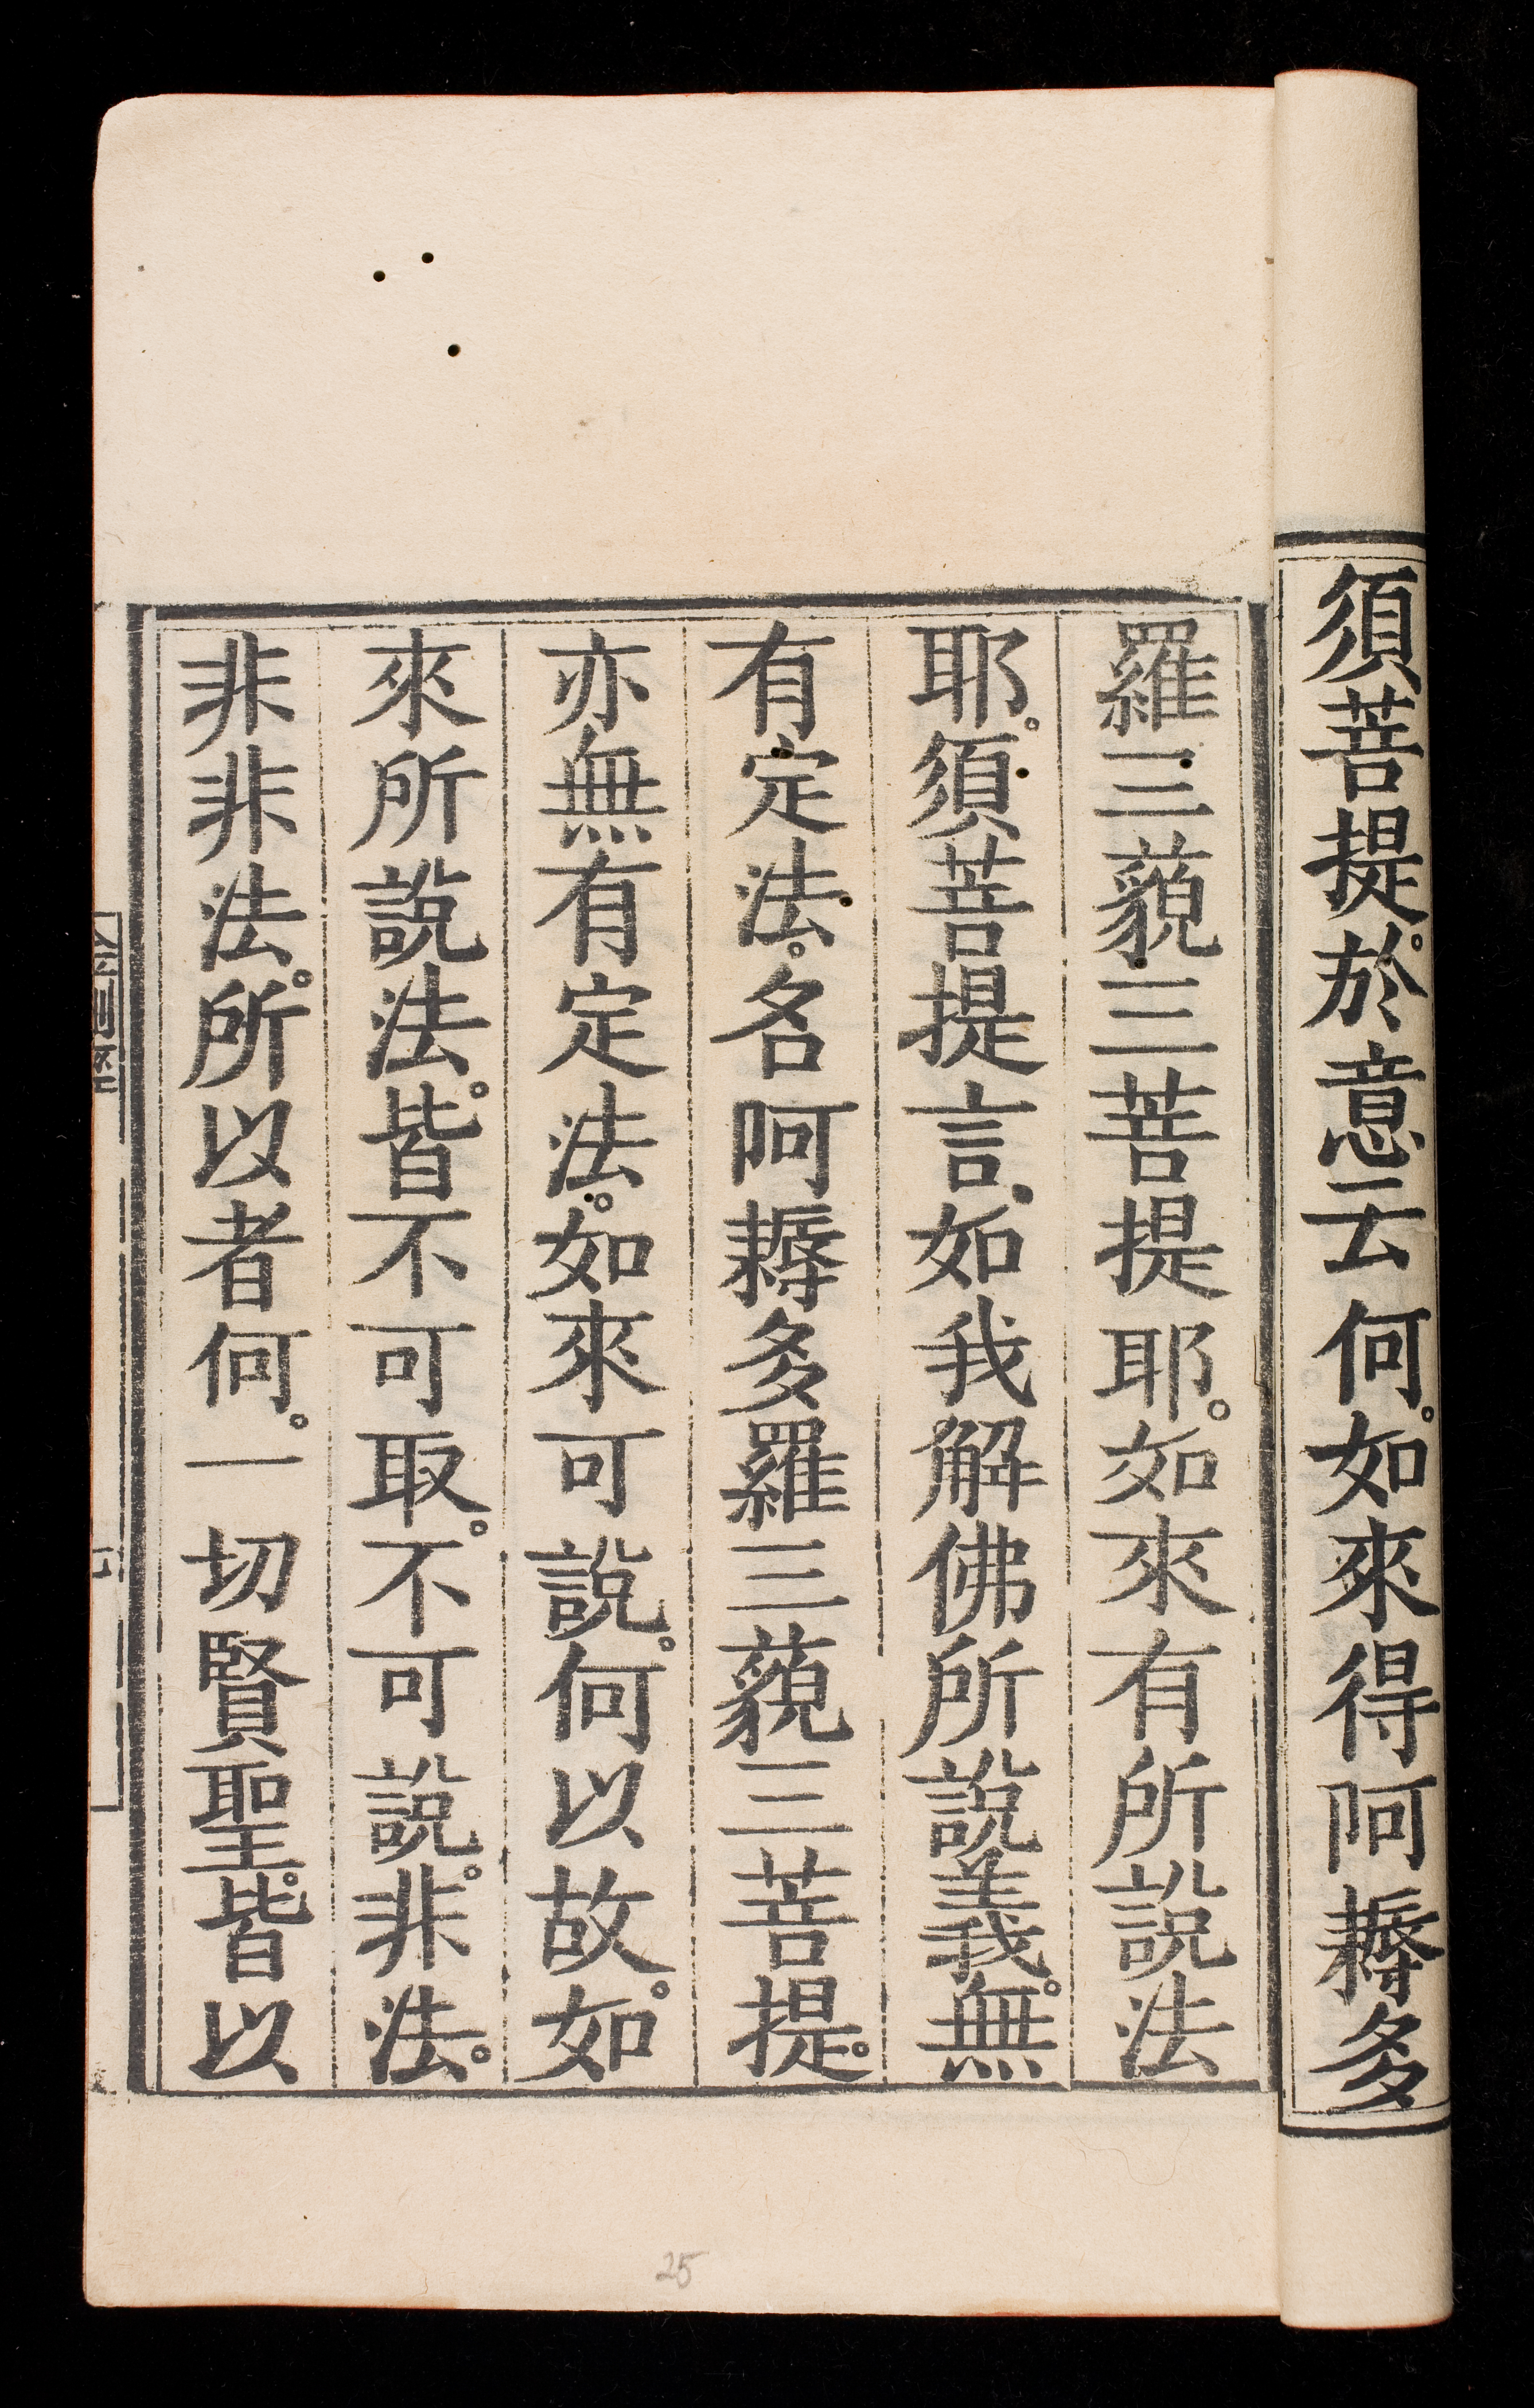 須菩提。於意云何。如來得阿耨多
羅三藐三菩提耶。如來有所說法
耶。須菩提言。如我解佛所說義。無
有定法。名阿耨多羅三藐三菩提。
亦無有定法。如來可說。何以故。如
來所說法。皆不可取。不可說。非法。
非非法。所以者何。一切賢聖。皆以
25